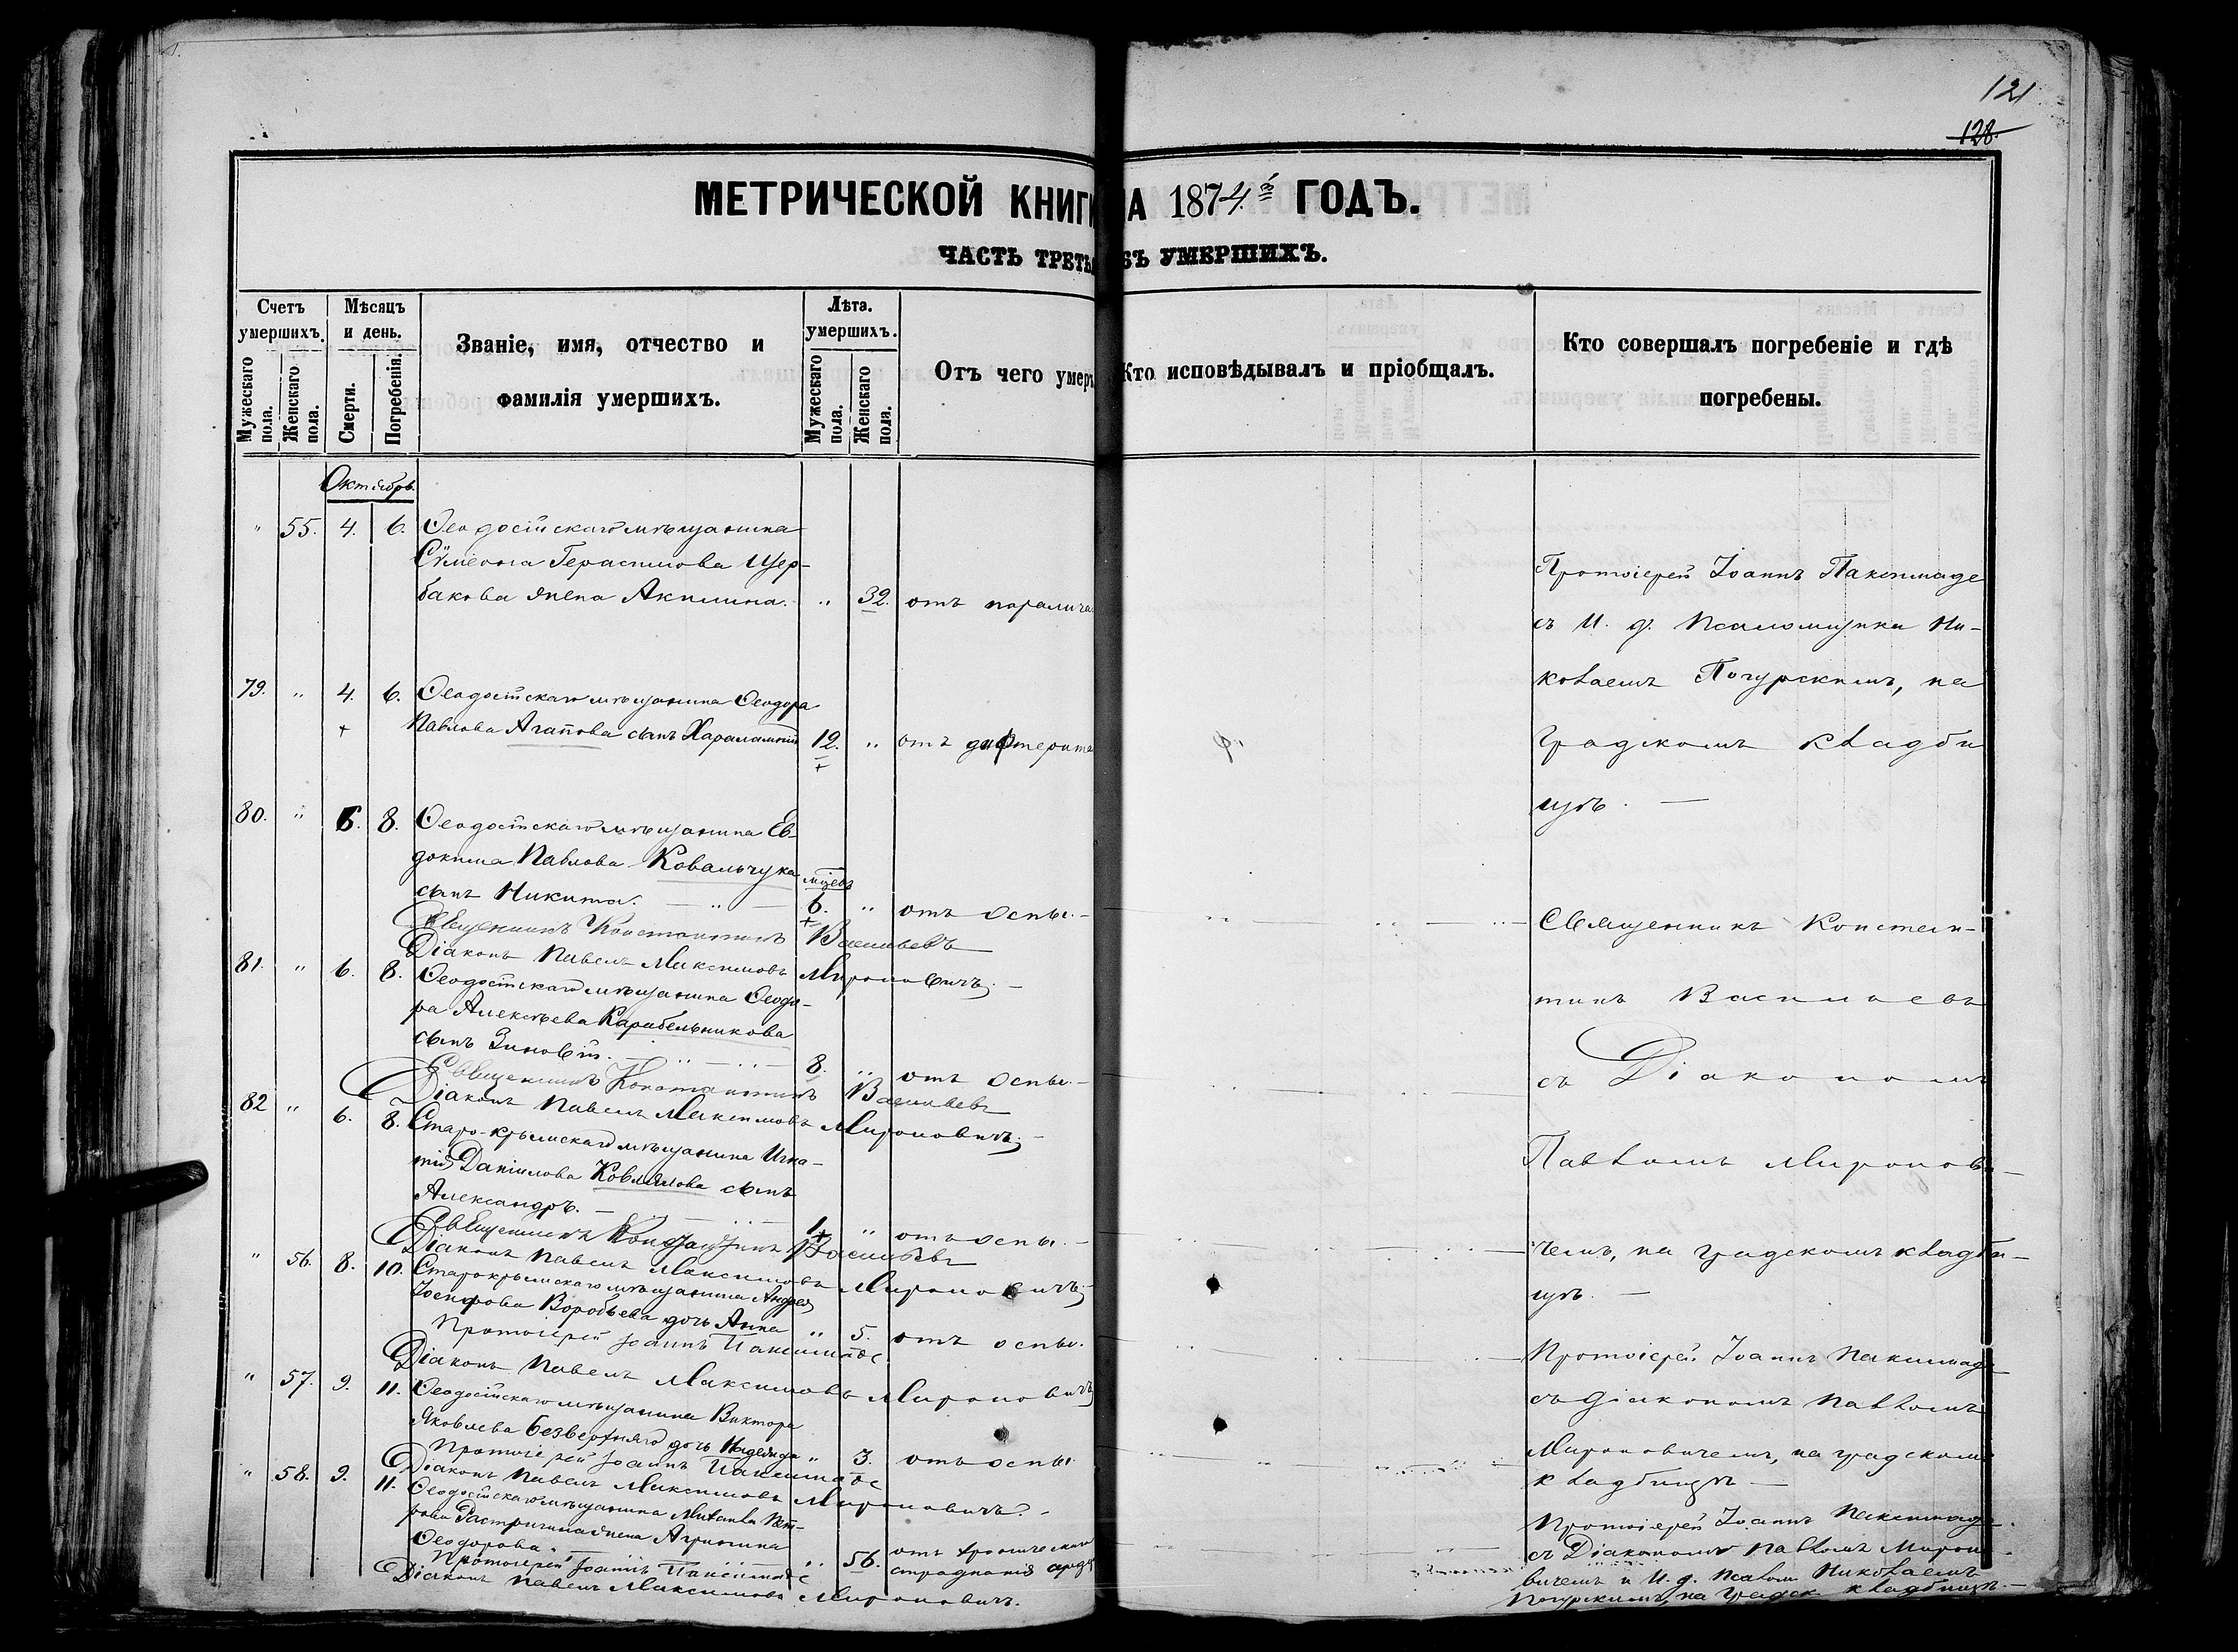 121
128.
МЕТРИЧЕСКОЙ КНИГИ НА 1874й ГОДЪ.
ЧАСТЬ ТРЕТЬ БЪ УМЕРШИХЪ.
Счетъ умершихъ.
Мужескаго пола.
Женскаго пола.
Мѣсяцъ и день.
Смерти.
Погребенія.
Званіе, имя, отчество и
фамилія умершихъ.
Лѣта. умершихъ.
Мужескаго пола.
Женскаго пола.
Отъ чего умеръ
Кто исповѣдывалъ и пріобщалъ.
Кто совершалъ погребеніе и гдѣ
погребены.
Октябрь.
" 55. 4. 6. Ѳеодосійскаго мѣщанина
Сѵмеона Герасимова Щер-
бакова жена Акилина. " 32. отъ паралича
79. " 4. 6. Ѳеодосійскаго мѣщанина Ѳеодора
Павлова Агапова сынъ Харалампій 12. " отъ дифтерита
80. " 6. 8. Ѳеодосійскаго мѣщанина Ев-
докима Павлова Ковальчука
сынъ Никита. мѣсв 6. " отъ оспы.
Священникъ Константинъ Васильевъ
Діаконъ Павелъ Максимовъ Мироновичъ.
81. " 6. 8. Ѳеодосійскаго мѣщанина Ѳеодо-
ра Алексѣева Карабельникова
сынъ Зиновій. 8. " отъ оспы.
Священникъ Константинъ Васильевъ
Діаконъ Павелъ Максимовъ Мироновичъ.
82 " 6. 8. Старо-крымскаго мѣщанина Игна-
тія Даніилова сынъ
Александръ. 1 " отъ оспы.
Священникъ Константинъ Васильевъ
Діаконъ Павелъ Максимовъ Мироновичъ.
" 56. 8. 10. Старокрымскаго мѣщанина Андрея
Іосифова Воробьева дочь Анна " 5. отъ оспы.
Протоіерей Іоаннъ Паксимаде
Діаконъ Павелъ Максимовъ Мироновичъ
" 57. 9. 11. Ѳеодосійскаго мѣщанина Виктора
Яковлева Безверхняго дочь Надежда " 3. отъ оспы
Протоіерей Іоаннъ Паксимаде
Діаконъ Павелъ Максимовъ Мироновичъ.
" 58. 9. 11. Ѳеодосійскаго мѣщанина Михаила Пет-
рова жена Агрипина
Ѳеодорова. " 56. отъ хроническаго
страданія
Протоіерей Іоаннъ Паксимаде
Діаконъ Павелъ Максимовъ Мироновичъ.
Протоіерей Іоаннъ Паксимаде
съ И. д. Псаломщика Ни-
колаемъ Погурскимъ, на
градскомъ кладби
щѣ.
Священникъ Констан-
тинъ Васильевъ
съ Діакономъ
Павломъ Миронови-
чемъ, на градскомъ кладби-
щѣ.
Протоіерей Іоаннъ Паксимаде
съ Діакономъ Павломъ
Мироновичемъ, на градскомъ
кладбищѣ
Протоіерей Іоаннъ Паксимаде
съ Діакономъ Павломъ Мироно-
вичемъ и И. д. Псалом Николаемъ
Погурскимъ, на градск кладбищѣ.